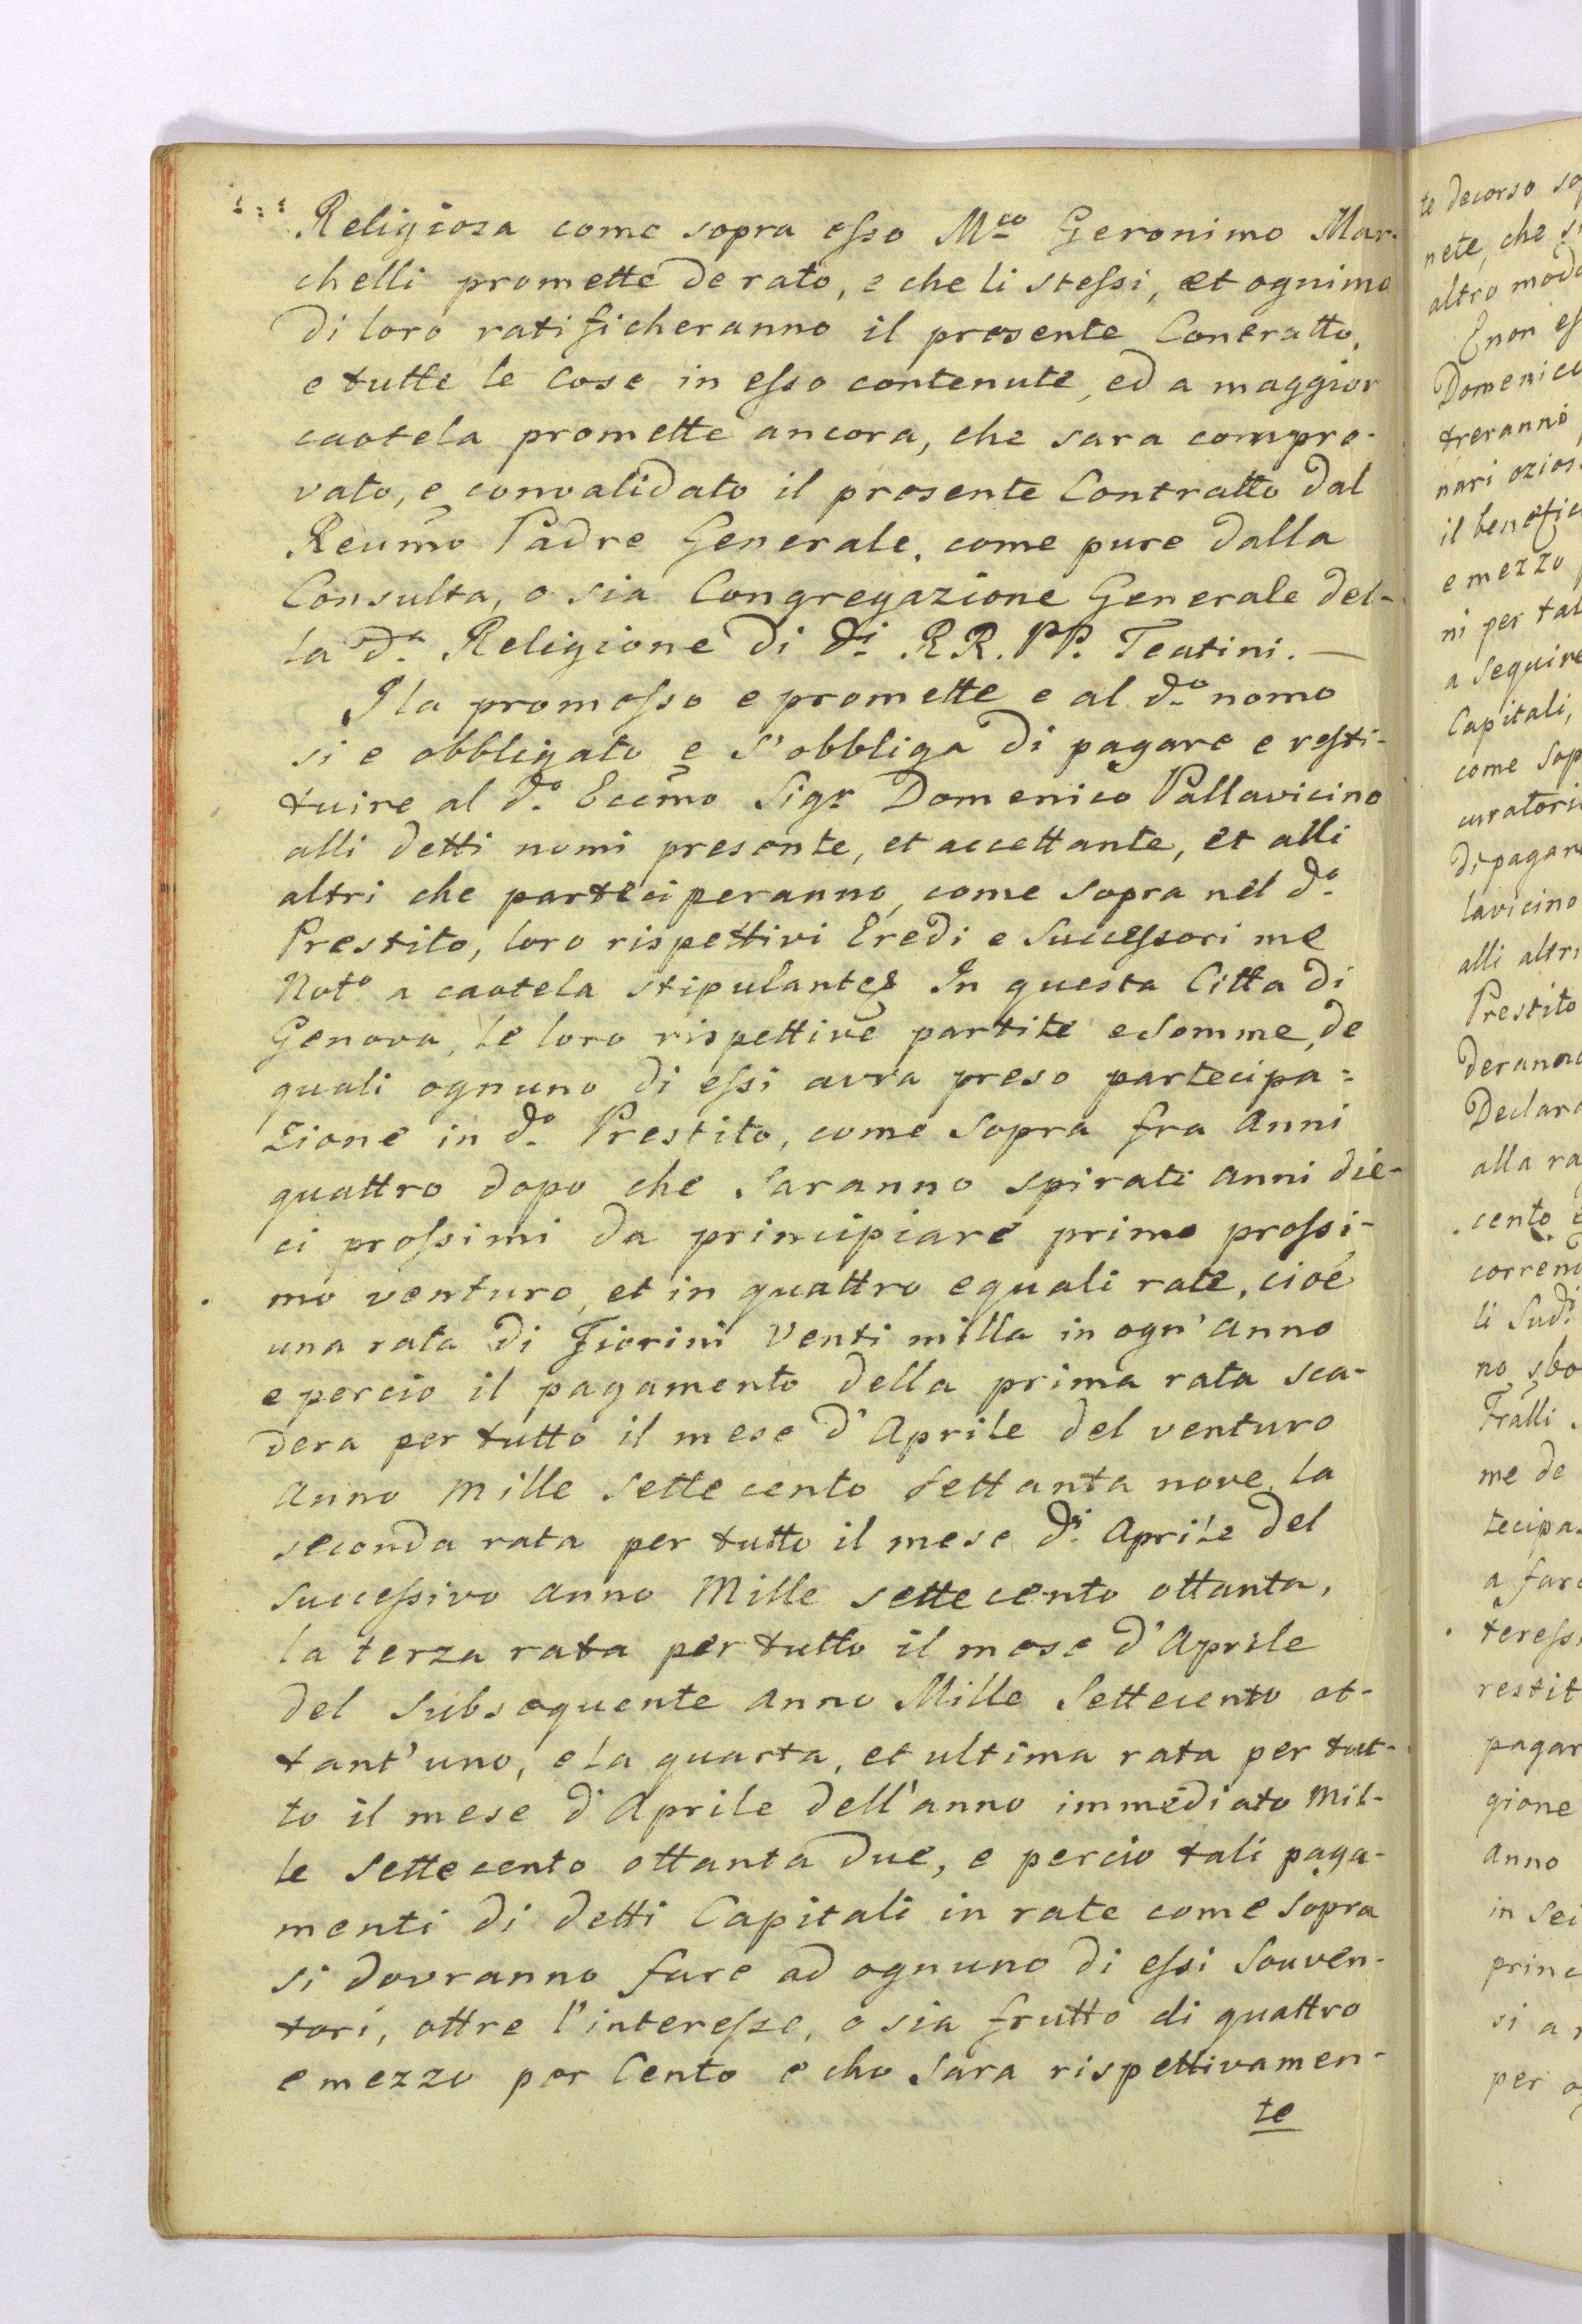 Religiosa come sopra esso M.co Geronimo Mar-
chelli promette de rato, e che li stessi, et ognimo
di loro ratificheranno il presente Contratto,
e tutte le Cose in esso contenute, ed a maggior
cautela promette ancora, che sara compro-
vato, e convalidato il presente Contratto dal
Reumo Padre Generale, come pure dalla
Consulta, o sia Congregazione Generale del-
la d.a Religione di d.i RR. PP. Teatini. —
Ha promesso e promette e al d.o nomo
si e obbligato e s'obbliga di pagare e resti-
tuire al d.o Eccmo Sigr Domenico Pallavicino
alli detti nomi presente, et accettante, et alli
altri che parteciperanno, come sopra nel d.o
Prestito, loro rispettivi Eredi e Successori me
Not.o a cautela stipulante In questa Citta di
Genova, le loro rispettive partite e Somme, de
quali ognuno di essi avra preso partecipa=
zione in d.o Prestito, come Sopra fra Anni
quattro dopo che Saranno spirati anni die-
ci prossimi da principiare primo prossi-
mo venturo, et in quattro eguali rate, cioé
una rata di Fiorini Venti milla in ogn' anno
e percio il pagamento della prima rata sca-
dera per tutto il mese d'Aprile del venturo
Anno Mille Sette cento Settanta nove, la
seconda rata per tutto il mese d.i Aprile del
Successivo anno Mille sette cento ottanta,
la terza rata per tutto il mese d'Aprile
del Subsequente anno Mille Settecento ot-
tant'uno, e la quarta, et ultima rata per tut-
to il mese d'Aprile dell'anno immediato Mil-
le Sette cento ottanta due, e percio tali paga-
menti di detti Capitali in rate come Sopra
si dovranno fare ad ognuno di essi Souven-
tori, oltre l'interesse, o sia frutto di quattro
e mezzo per Cento e che Sara rispettivamen-
te
te decorso so
nete, che si
altro modo
E non es
Domenico
treranno
nari ozios
il benefic
e mezzo p
ni per tal
a Seguire
Capitali,
come Sop
curatori
di pagare
lavicino
alli altri
Prestito
deranno
Declara
alla ra
cento e
corrend
li Sud.i
no sbo
Fralli
me de
tecipa-
a fare
teressi
restit
pagar
gione
anno
in Sei
princ
si a
per o